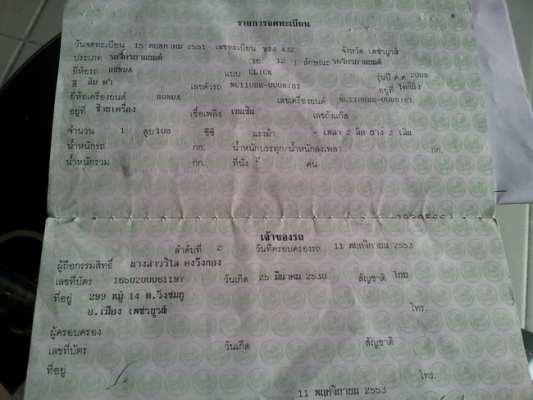 รายการจดทะเบียน
วันจดทะเบียน 15 พฤษภาคม 2551 เลขทะเบียน 432 จังหวัด เพชรบูรณ์
ประเภท รถจักรยานยนต์ (รย. 12 ) ลักษณะ รถจักรยานยนต์
ยี่ห้อรถ HONDA แบบ CLICK รุ่นปี ค.ศ 2008
สี ดำ เลขตัวรถ NC110BB-0008781 อยู่ที่
ยี่ห้อเครื่องยนต์ HONDA เลขเครื่องยนต์ อยู่ที่ ซ้ายเครื่อง เชื้อเพลิง เบนซิน เลขถังแก๊ส
จำนวน 1 สูบ 108 ซีซี แรงม้า - เพลา 2 ล้อ ยาง 2 เส้น
น้ำหนักรถ กก. น้ำหนักบรรทุก/น้ำหนักลงเพลา กก.
น้ำหนักรวม กก. ที่นั่ง คน
เจ้าของรถ
ลำดับที่ 2 วันที่ครอบครองรถ 11 พฤศจิกายน 2553
ผู้ถือกรรมสิทธิ์ นางสาววิไล
เลขที่บัตร 1650200061197 วันเกิด 25 มีนาคม 2530 สัญชาติ ไทย
ที่อยู่ 299 หมู่ 14 ต.วังชมภู
อ.เมือง เพชรบูรณ์
โทร.
ผู้ครอบครอง
เลขที่บัตร วันเกิด สัญชาติ
ที่อยู่
โทร.
11 พฤศจิกายน 2553